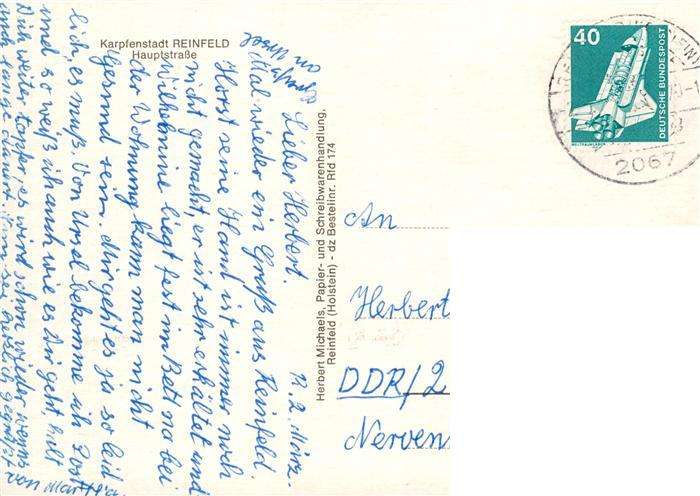 Karpfenstadt REINFELD
Hauptstraße
40
DEUTSCHE BUNDESPOST
WELTRAUMLABOR
2067
Herbert Michaels, Papier- und Schreibwarenhandlung,
Reinfeld (Holstein) - dz Bestellnr. Rfd 174
R. 2. März.
Lieber Herbert.
Mal wieder ein Gruß aus Reinfeld.
Horst seine Hand ist immer noch
nicht gemacht, er ist sehr erkältet und
Wilhelmine liegt fest im Bett na bei
der Wohnung kann man nicht
gesund sein. Mir geht es ja so leid
lich, es muß. Von Ursel bekomme ich Post
und so weiß ich auch wie es Dir geht halt
Dich weiter tapfer, es wird schon wieder wenns
auch lange dauert. Nun sei herzlich gegrüßt
von
An
Herbert
DDR/2
Nerven